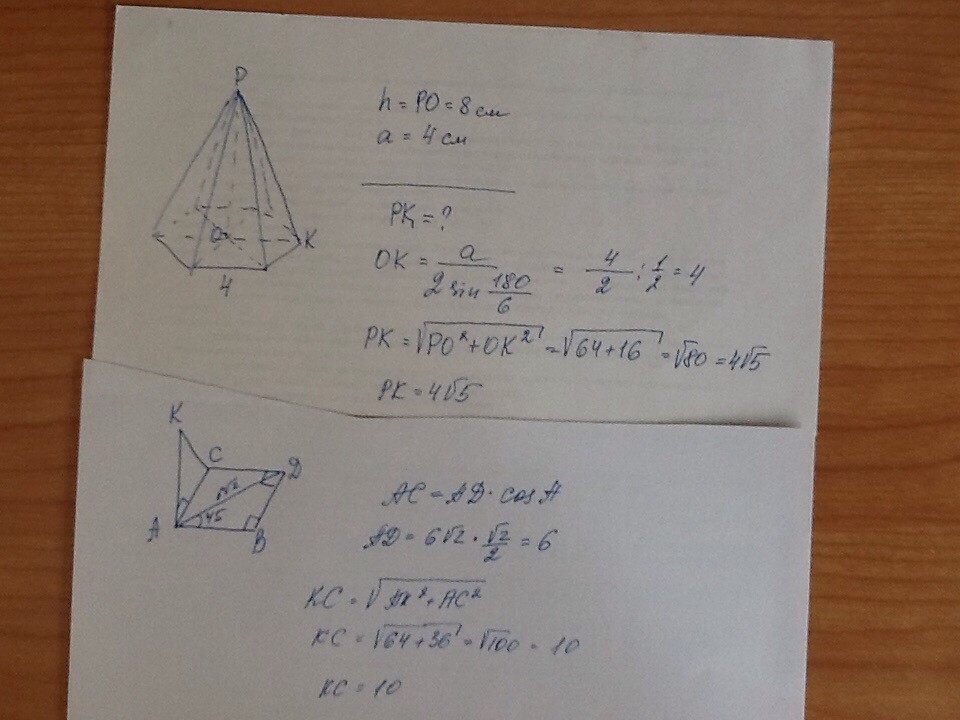 P
h = PO = 8 см
a = 4 см
PK = ?
O
K
4
OK = a / (2 sin 180/6) = 4/2 : 1/2 = 4
PK = √(PO² + OK²) = √(64+16) = √80 = 4√5
PK = 4√5
K
C
D
6√2
45
A
B
AC = AD · cos A
AD = 6√2 · √2/2 = 6
KC = √(AK² + AC²)
KC = √(64+36) = √100 = 10
KC = 10